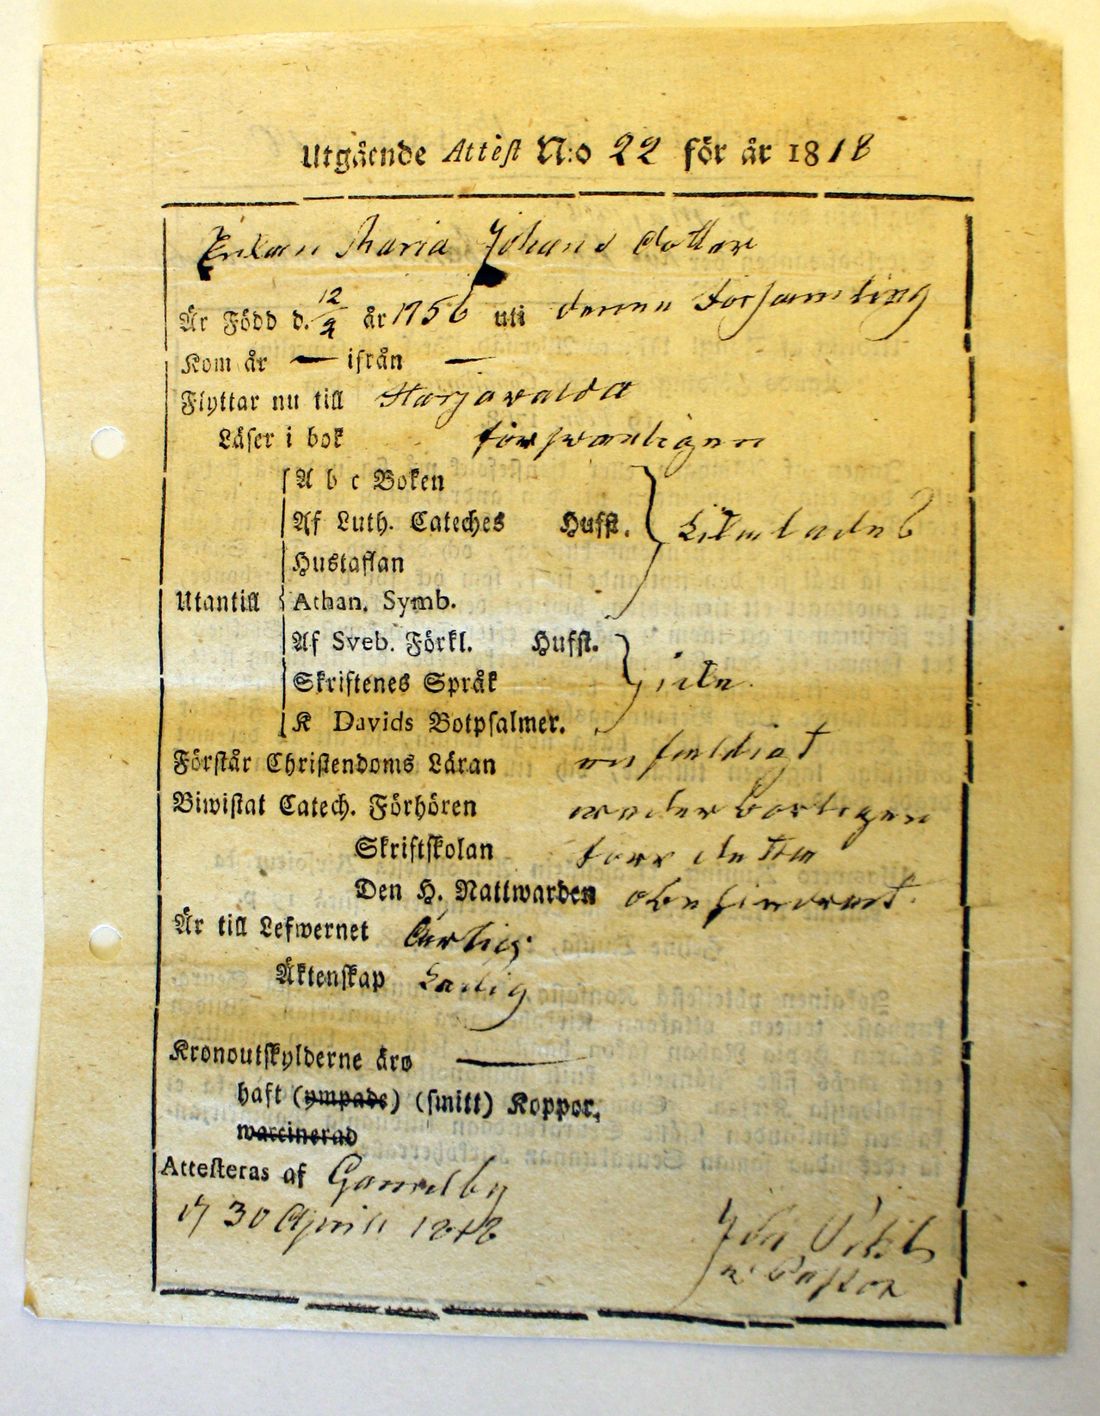 Utgående Attest N:o 22 för år 1818
Enkan Maria Johans dotter
Är Född d. 12/9 år 1756 uti denna Församling
Kom år — ifrån —
Flyttar nu till Harjavalda
Läser i bok försvarligen
A b c Boken
Af Luth. Cateches Hufst.
Hustaflan
Utantill Athan. Symb.
Af Sveb. Förkl. Hufst.
Skriftenes Språk icke
K Davids Botpsalmer.
Förstår Christendoms Läran enfaldigt
Biwistat Catech. Förhören
Skriftskolan förr detta
Den H. Nattwarden obehindrat.
Är till Lefwernet Ärlig
Äktenskap Ledig
Kronoutskylderne äro —
haft (ympade) (smitt) Koppor,
waccinerad
Attesteras af Gammelby
d 30 April 1818
Pastor